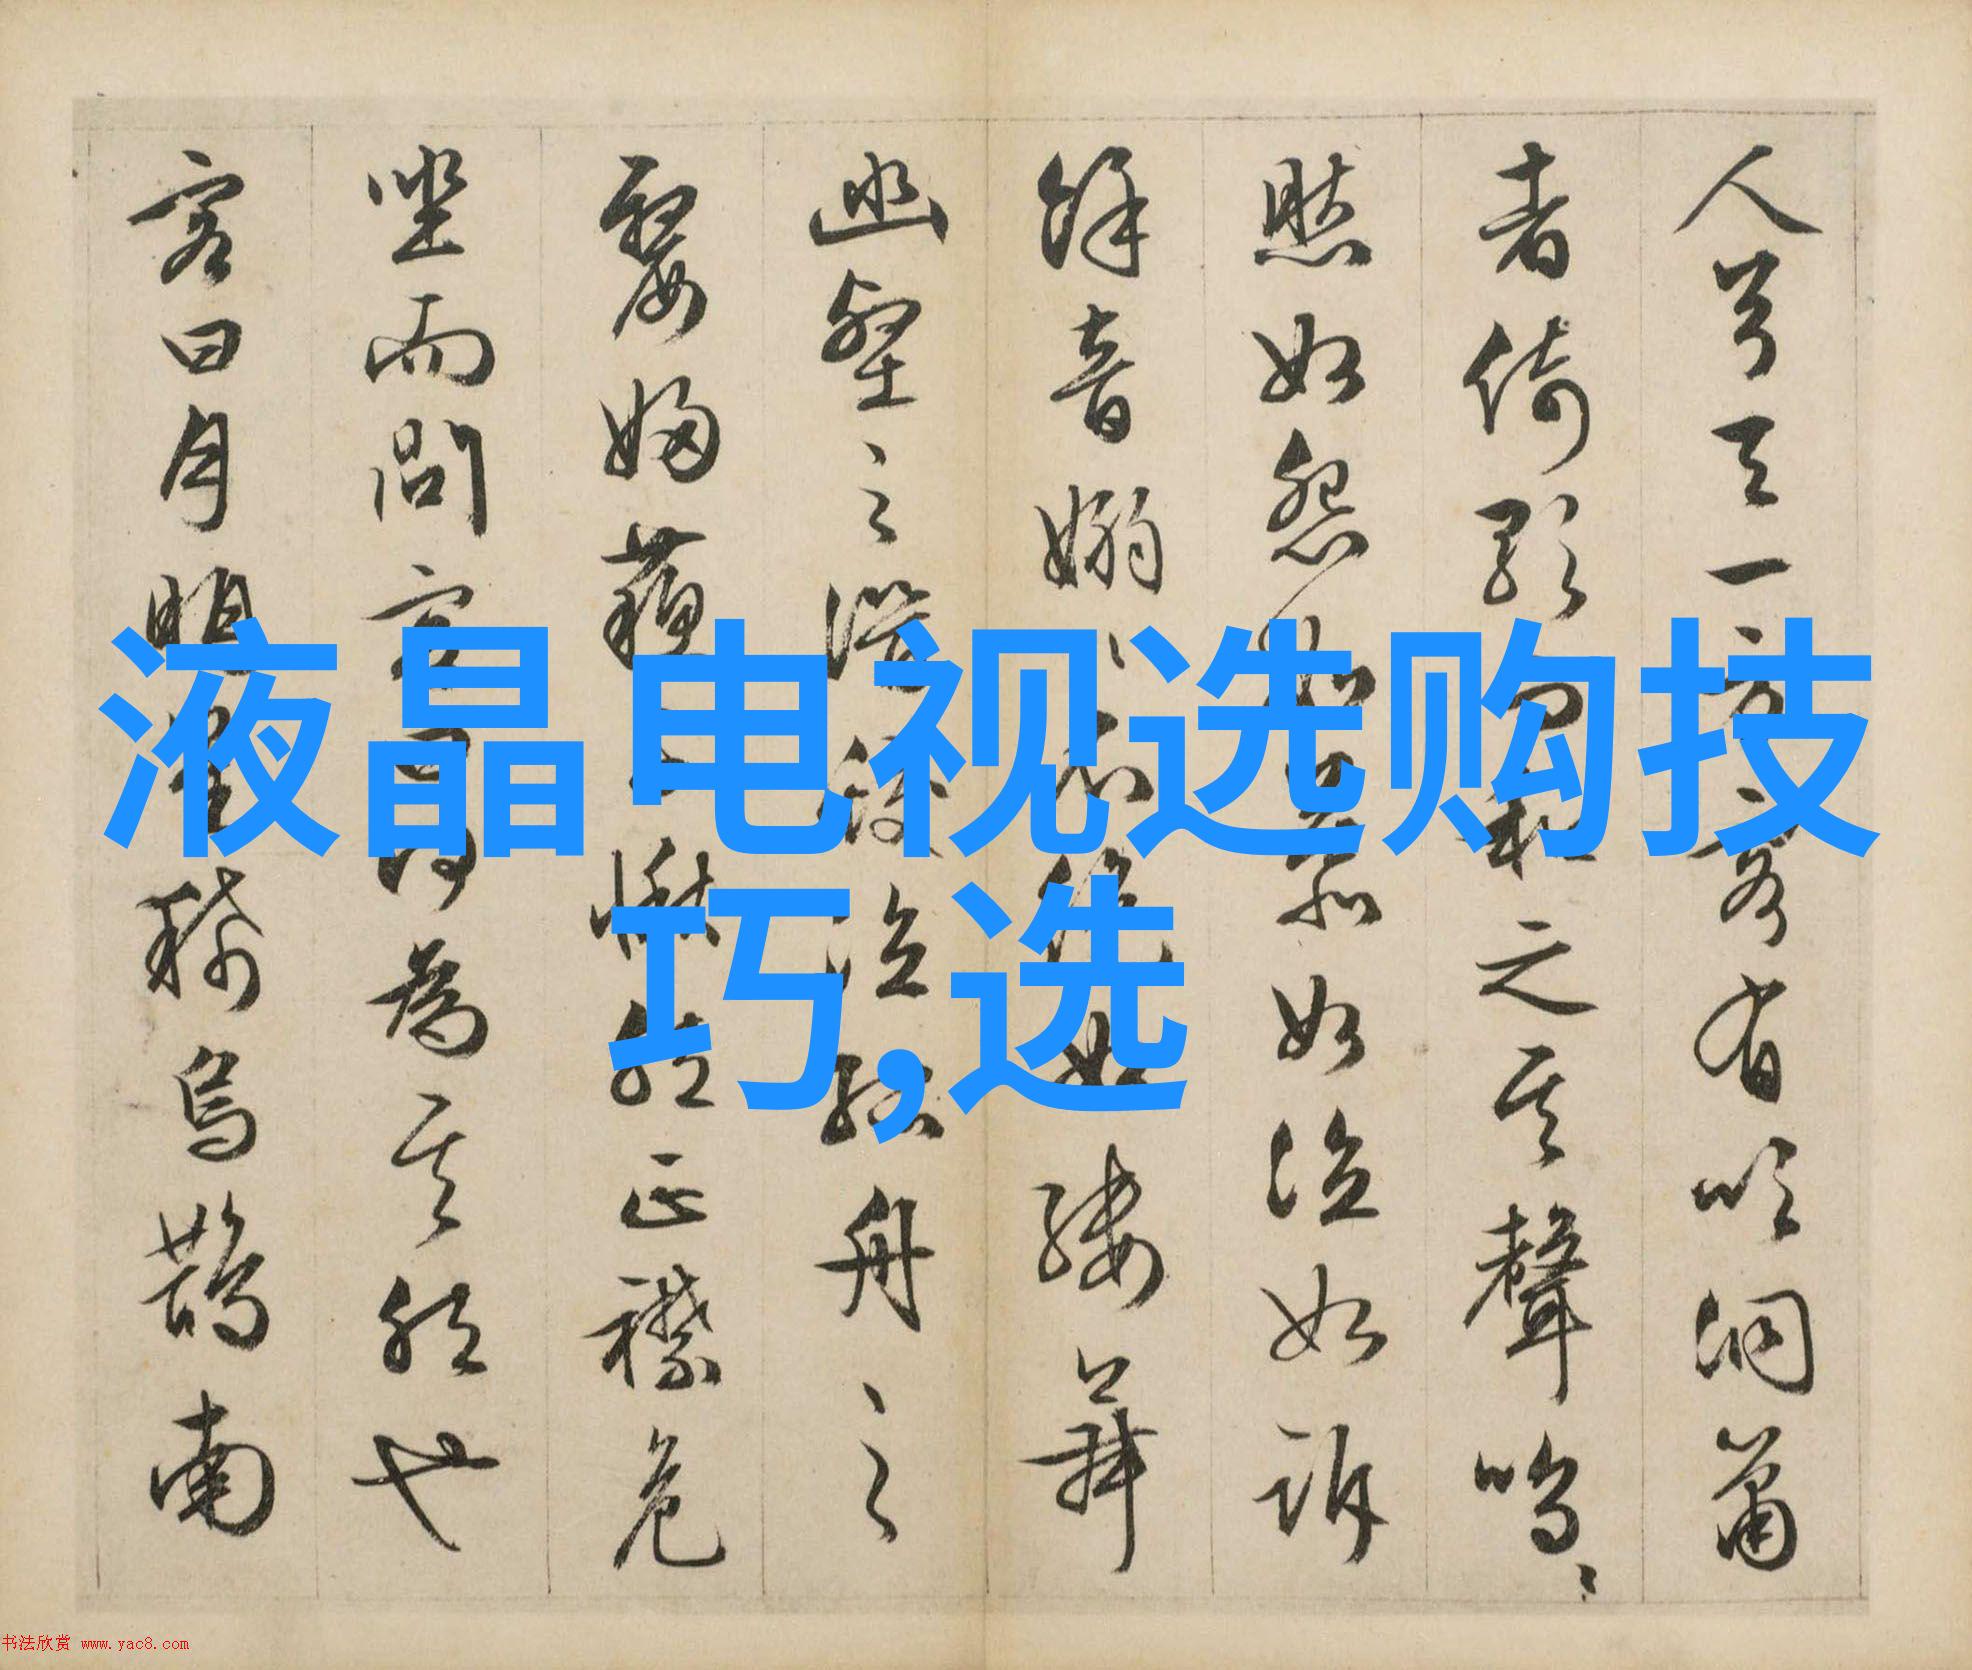 人兮天一方客有吹洞簫
者倚歌而和之其聲嗚〻
然如怨如慕如泣如訴
餘音嫋〻不絕如縷舞
幽壑之潛蛟泣孤舟之
嫠婦蘇子愀然正襟危
坐而問客曰何為其然也
客曰月明星稀烏鵲南
液晶电视选购技
巧,选
书法欣赏 www.yac8.com